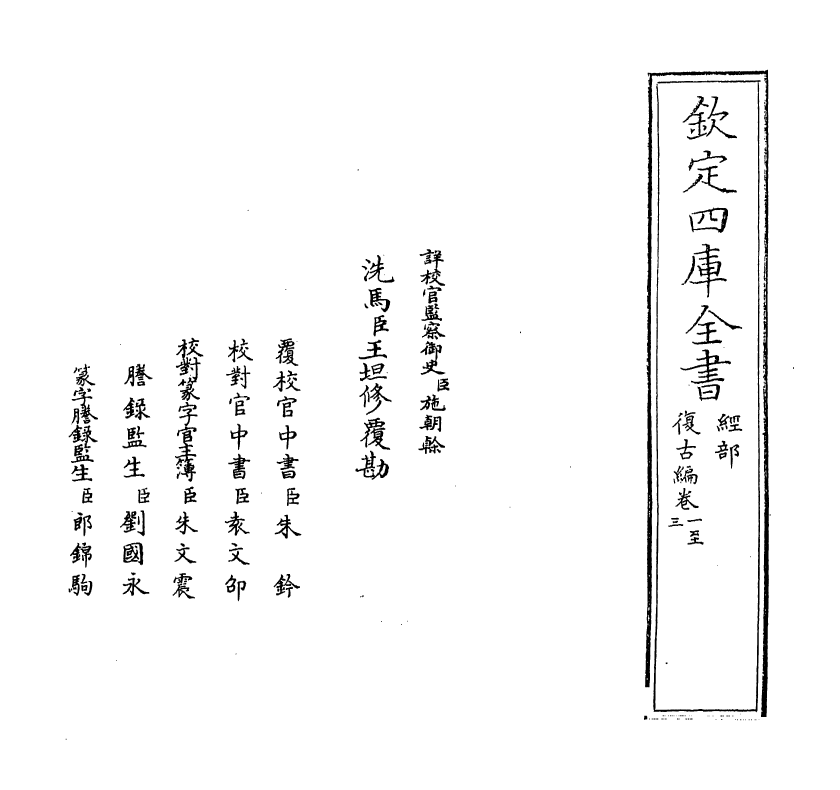 欽定四庫全書
經部
復古編卷一至三
詳校官監察御史臣施朝榦
洗馬臣王坦修覆勘
覆校官中書臣朱鈐
校對官中書臣袁文邵
校對篆字官主簿臣朱文震
謄錄監生臣劉國永
篆字謄錄監生臣郎錦駒